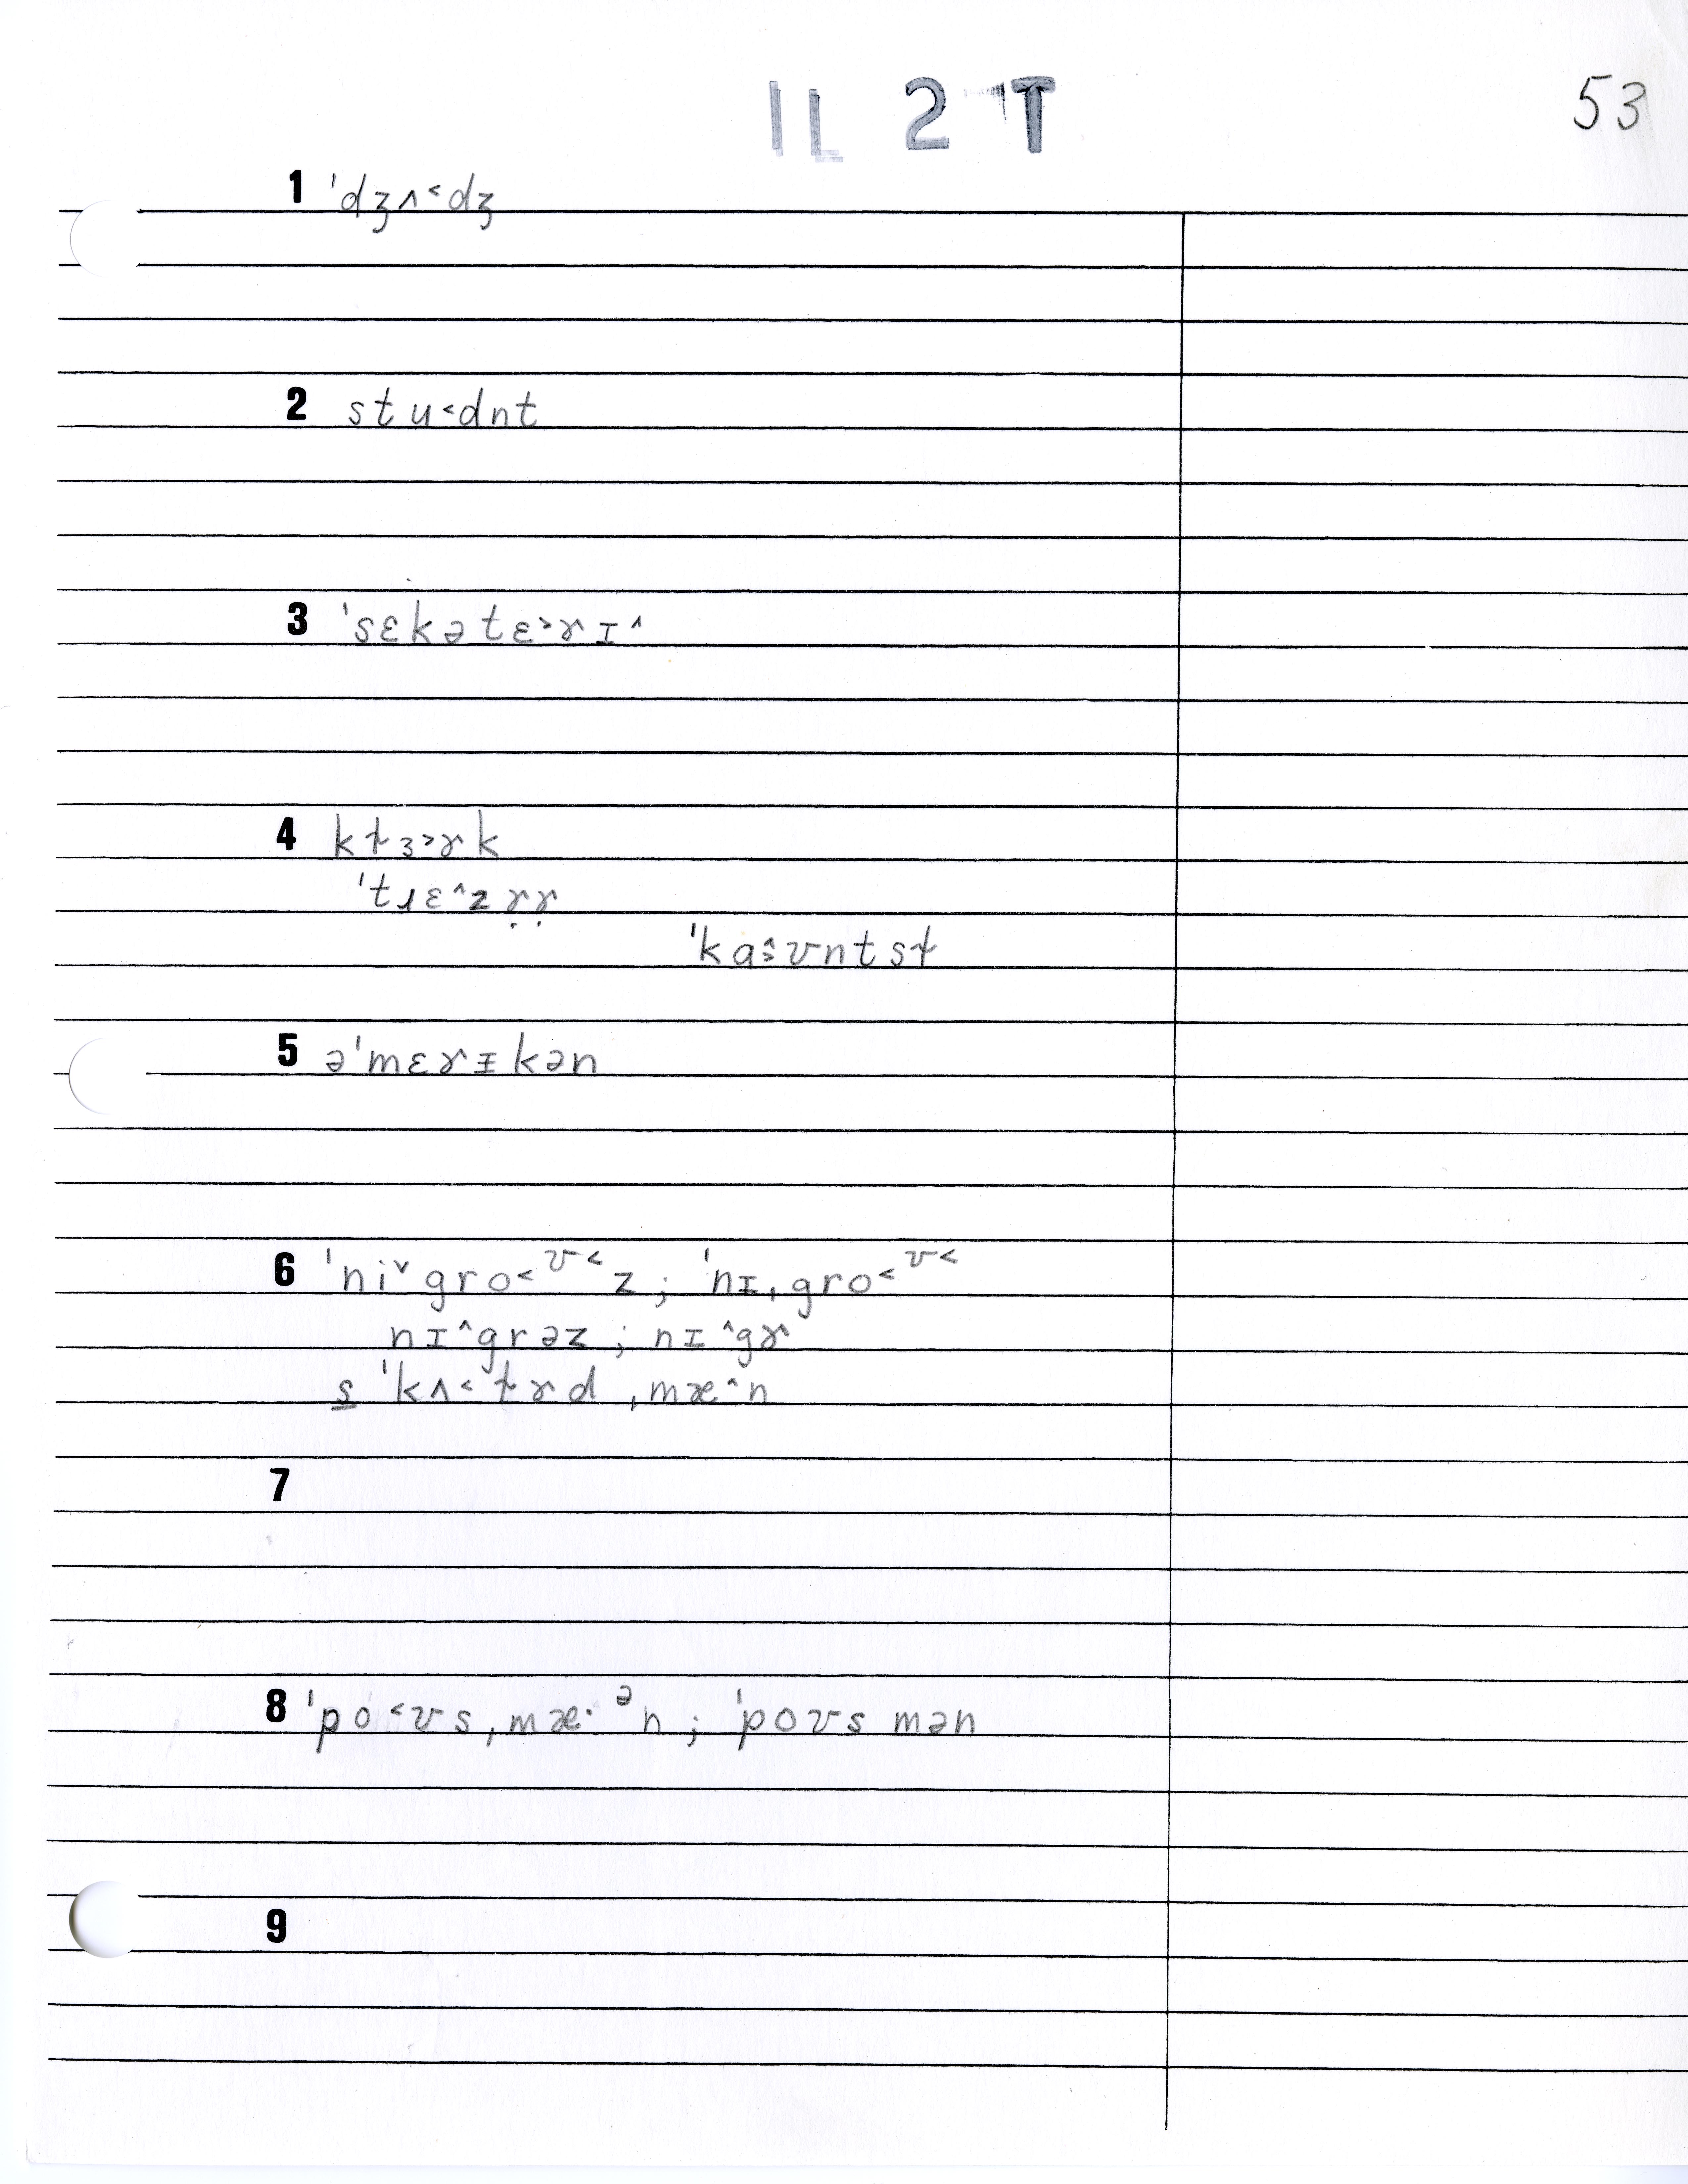 IL 2 T
53
1 ˈdʒʌ˂dʒ
2 stu˂dnt
3 ˈsɛkətɛ˃ɤɪ˄
4 kɫɜ˃ɤk
ˈtɹɛ˄zɤ̣ɤ̣
ˈkɑ˔˃ʊntsɫ
5 əˈmɛɤᵻkən
6 ˈni˅gro˂ᶹ˂z; ˈnɪˌgro˂ᶹ˂
nɪ˄grəz; nɪ˄gɤ
s̲ ˈkʌ˂ɫɤd ˌmæ˄n
7
8 ˈpo˂ʊsˌmæ·ᵊn; ˈpoʊsmən
9